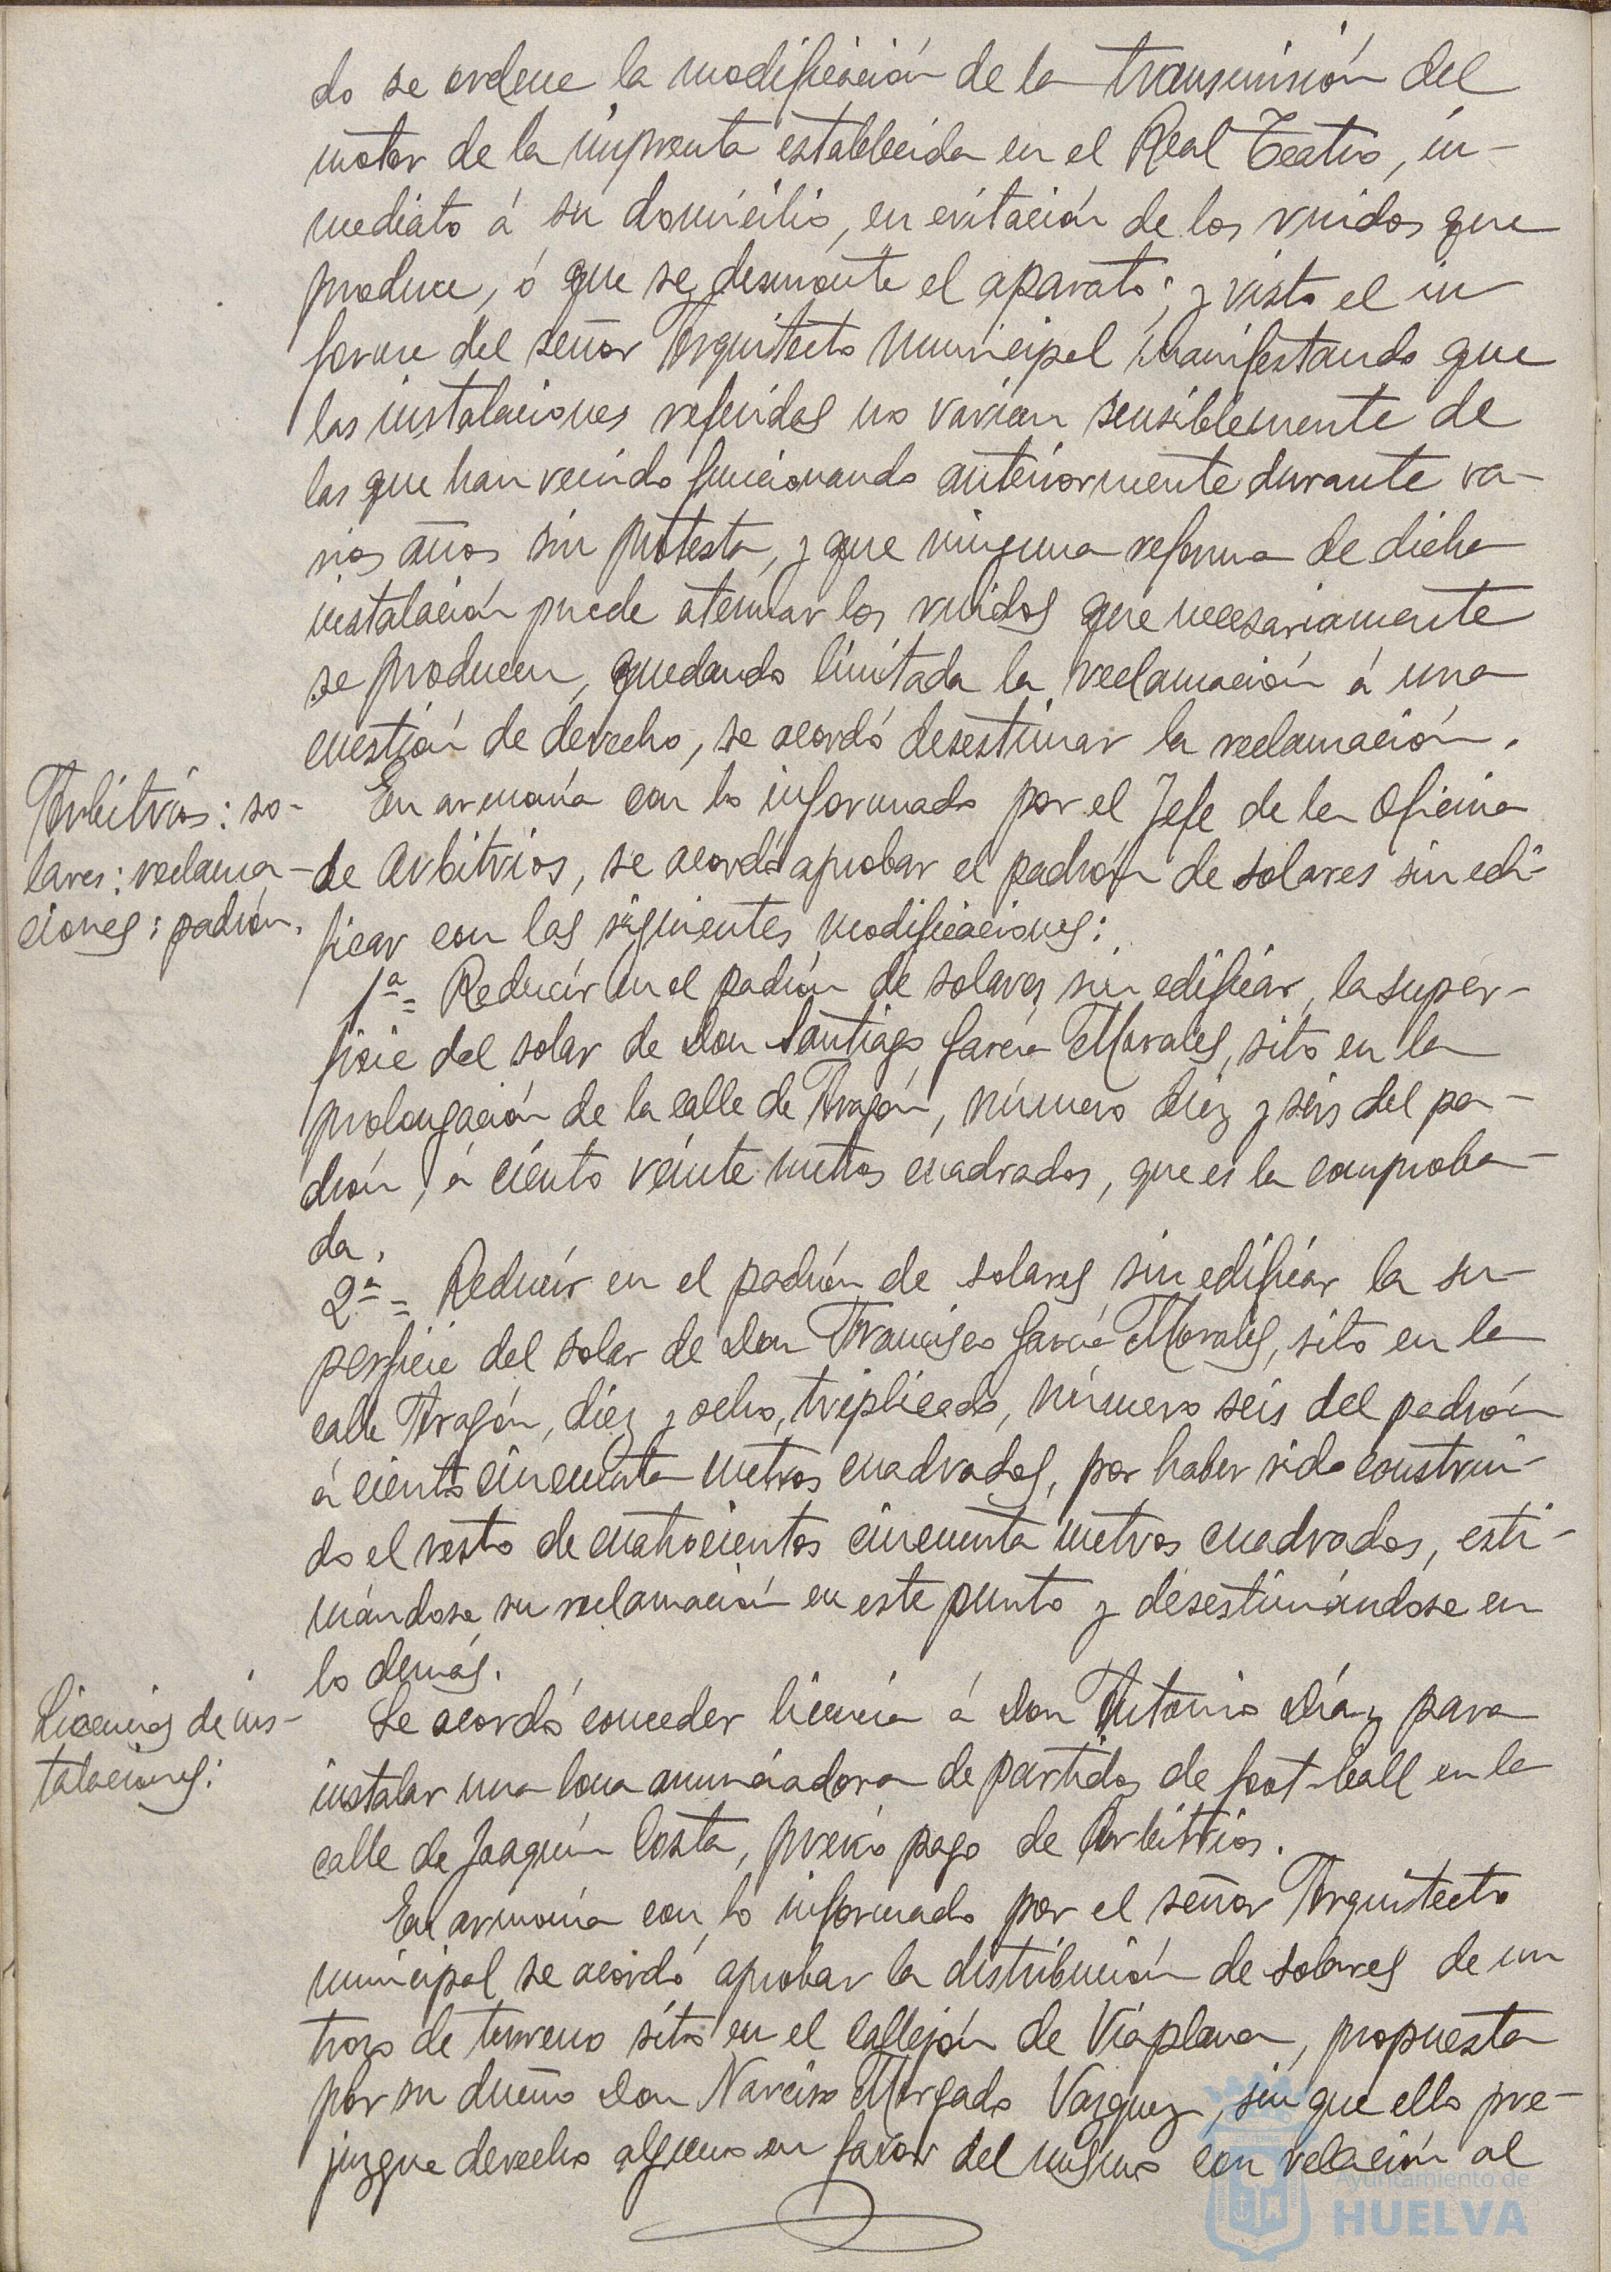 do se ordene la modificación de la transmisión del
motor de la imprenta establecida en el Real Teatro, in-
mediato á su domicilio, en evitación de los ruidos que
produce, ó que se desmonte el aparato; y visto el in
forme del señor Arquitecto Municipal manifestando que
las instalaciones referidas no varían sensiblemente de
las que han venido funcionando anteriormente durante va-
rios años sin protesta, y que ninguna reforma de dicha
instalación puede atenuar los ruidos que necesariamente
se producen, quedando limitada la reclamación á una
cuestión de derecho, se acordó desestimar la reclamación.
Arbitrios: so-
lares: reclama-
ciones: padrón.
En armonía con lo informado por el Jefe de la Oficina
de Arbitrios, se acordó aprobar el padrón de solares sin edi-
ficar con las siguientes modificaciones:
1ª= Reducir en el padrón de solares sin edificar, la super-
ficie del solar de Don Santiago García Morales, sito en la
prolongación de la calle de Aragón, número diez y seis del pa-
drón, á ciento veinte metros cuadrados, que es la comproba-
da.
2ª= Reducir en el padrón de solares sin edificar la su-
perficie del solar de Don Francisco García Morales, sito en la
calle Aragón, diez y ocho, triplicado, número seis del padrón
á ciento cincuenta metros cuadrados, por haber sido construi-
do el resto de cuatrocientos cincuenta metros cuadrados, esti-
mándose su reclamación en este punto y desestimándose en
lo demás.
Licencias de ins-
talaciones:
Se acordó conceder licencia á Don Antonio Díaz para
instalar una lona anunciadora de partidos de foot-ball en la
calle de Joaquín Costa, previo pago de Arbitrios.
En armonía con lo informado por el señor Arquitecto
municipal se acordó aprobar la distribución de solares de un
trozo de terreno sito en el callejón de Viaplana, propuesta
por su dueño Don Narciso Morgado Vazquez, sin que ello pre-
juzgue derecho alguno en favor del mismo con relación al
Ayuntamiento de
HUELVA